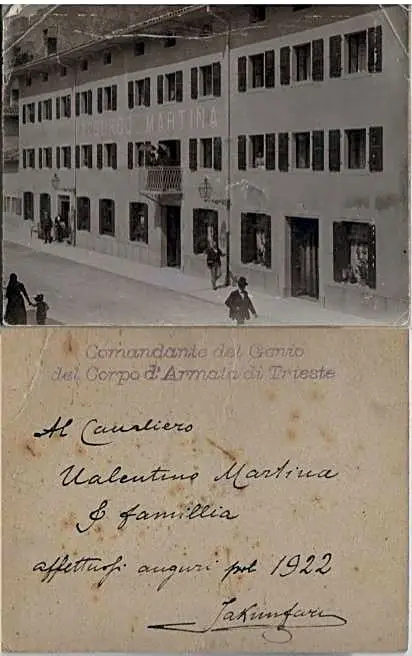 ALBERGO MARTINA
Comandante del Genio
del Corpo d'Armata di Trieste
Al Cavaliero
Valentino Martina
& famillia
affettuosi auguri pel 1922